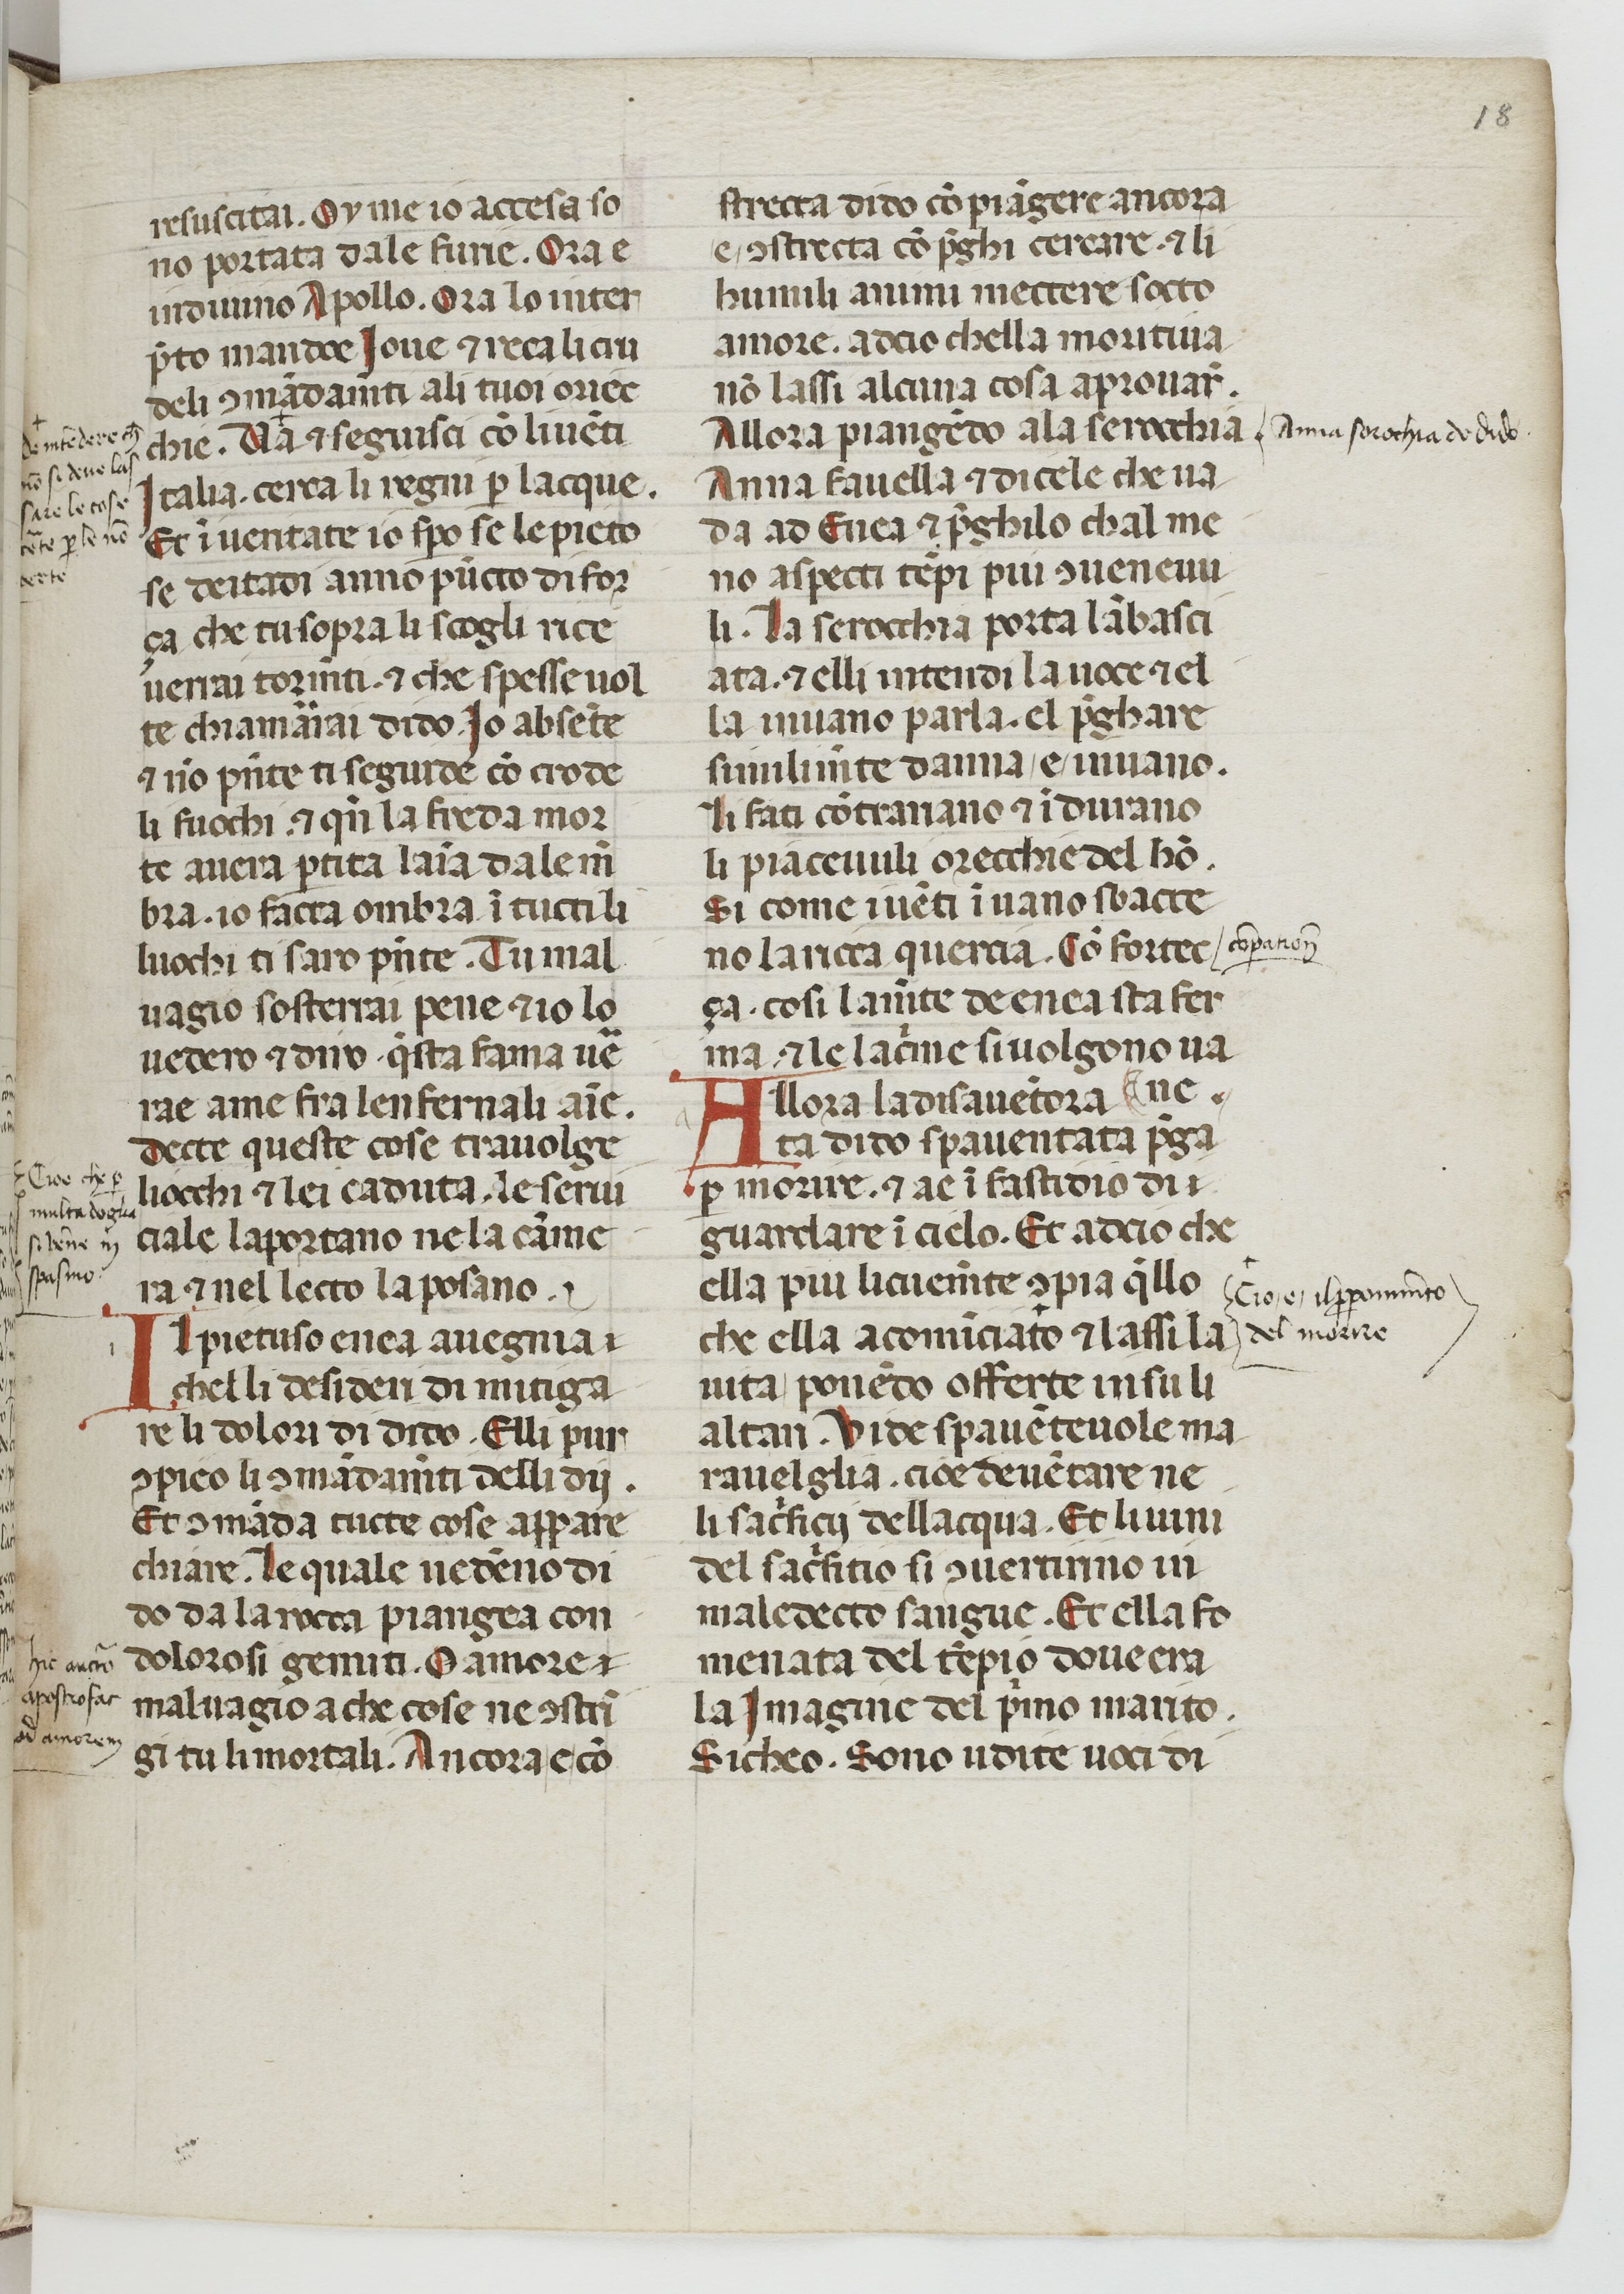 18
resuscitai. Oy me io accesa so
no portata dale furie. Ora e
indiuino Apollo. Ora lo inter
p̃to mandoe Ioue ⁊ reca li cru
deli ꝯmãdam̃ti ali tuoi orec
chie. Ua ⁊ seguisci cõ li uẽti
Italia. cerca li regni ꝑ lacque.
Et ĩ ueritate io spo se le pieto
se deitadi anno pũcto di for
ça che tu sopra li scogli rice
uerrai torm̃ti. ⁊ che spesse uol
te chiamãrai dido. Io absẽte
⁊ nõ pñte ti seguirde cõ crode
li fuochi. ⁊ qñ la freda mor
te auera ꝑtita laĩa dale mẽ
bra. io facta ombra ĩ tucti li
luochi ti saro pñte. Tu mal
uagio sosterrai pene ⁊ io lo
uedero ⁊ diro. q̃sta fama uẽ
rae ame fra lenfernali aĩe.
Decte queste cose trauolge
liocchi ⁊ lei caduta. le serui
ciale laportano ne la cãme
ra ⁊ nel lecto la posano.
Il pietuso enea auegnia
chelli desideri di mitiga
re li dolori di dido. Elli pur
ꝯpieo li ꝯmãdam̃ti delli dij.
Et ꝯmãda tucte cose appare
chiare. le quale uedẽno di
do da la rocca piangea con
dolorosi gemiti. O amore
maluagio a che cose ne ꝯstrĩ
gi tu li mortali. Ancora e cõ
strecta dido cõ piãgere ancora
e ꝯstrecta cõ p̃ghi cercare. ⁊ li
humili animi mectere socto
amore. adcio chella moritiua
nõ lassi alcuna cosa aprouar̃.
Allora piangẽdo a la serocchia
Anna fauella ⁊ dicele che ua
da ad Enea ⁊ p̃ghilo chal me
no aspecti tẽpi piu ꝯueneuu
li. La serocchia porta lãbasci
ata. ⁊ elli intendi la uoce ⁊ el
la inuano parla. el p̃ghare
similim̃te danna e inuano.
li fati cõtrariano ⁊ ĩdurano
li piaceuuli orecchie del hõ.
Si come i uẽti ĩ uano sbacte
no la ricta quercia. Cõ fortec
ça. cosi lam̃te de enea sta fer
ma. ⁊ le lacr̃me si uolgono ua
ne.
Allora la disauẽtora
ta dido spauentata p̃ga
ꝑ morire. ⁊ ae ĩ fastidio di
guardare ĩ cielo. Et adcio che
ella piu licitem̃te ꝯpia q̃llo
che ella a comĩciato ⁊ lassi la
uita ponẽdo offerte in su li
altari. Vide spauẽteuole ma
rauelglia. cioe deuẽtare ne
li sacr̃ficij dellacqua. Et li uini
del sacr̃fitio si ꝯuertirino in
maledecto sangue. Et ella fo
menata del tẽpio doue era
la Imagine del p̃mo marito.
Sicheo. Sono udite uoci di
De intẽdere ch̃
nõ si deue las
sare le cose
ꝑ le nõ
certe
Cioe che ꝑ
multa doglia
si uẽne ĩ
spasmo
hic auctor
apostrofat
ad amorem
Anna serochia de dido.
cõꝑation̄
Cio e il ꝓponim̃to
del morire